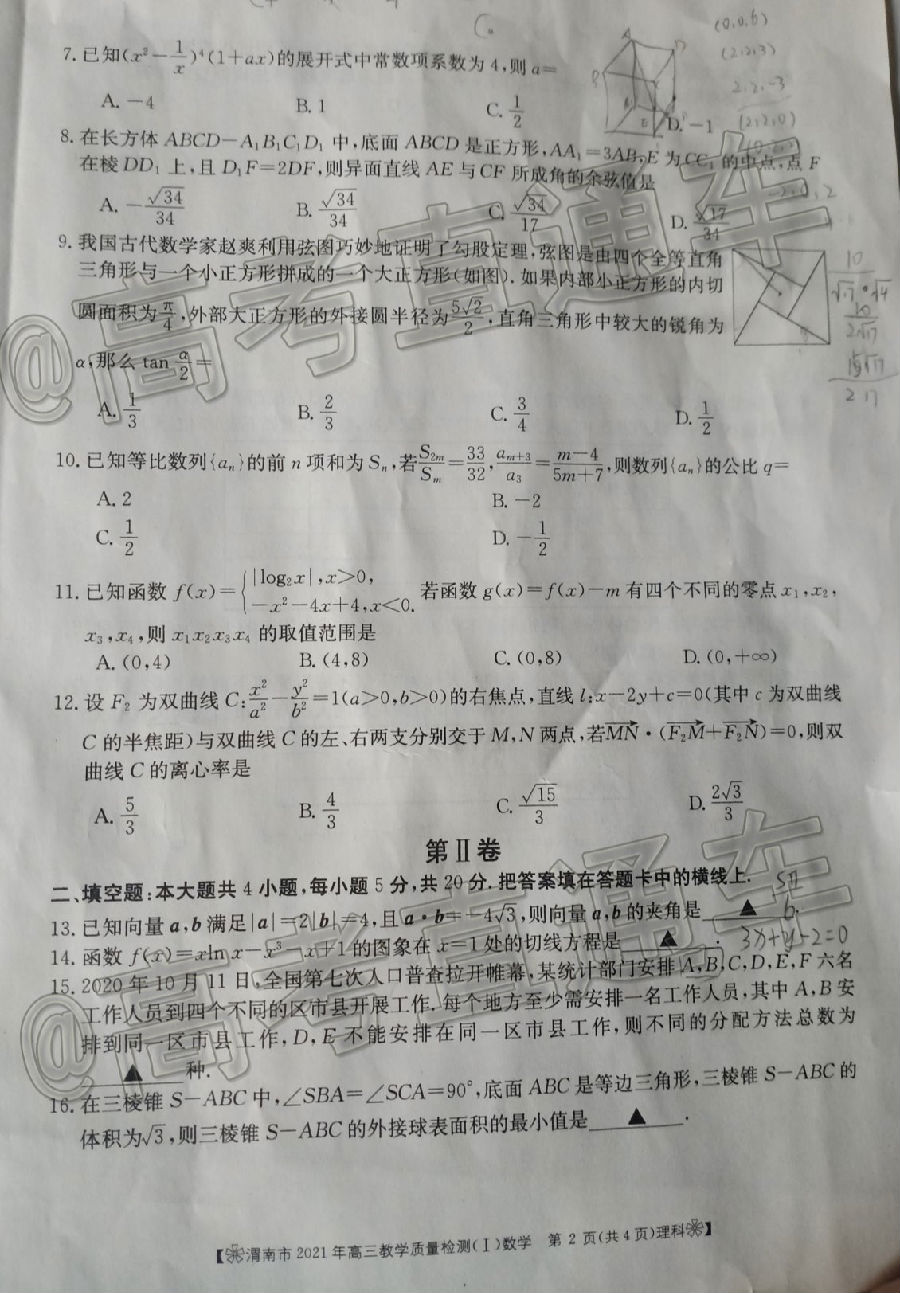 (0,0,6)
7. 已知(x²-1/x)⁴(1+ax)的展开式中常数项系数为4,则a=
(2,2,3)
2,2,-3
A. -4 B. 1 C. 1/2 D. -1
(2,2,0)
8. 在长方体ABCD-A₁B₁C₁D₁中,底面ABCD是正方形,AA₁=3AB,E为CC₁的中点,点F
在棱DD₁上,且D₁F=2DF,则异面直线AE与CF所成角的余弦值是
A. -√34/34 B. √34/34 C. √34/17 D. √17/34
9. 我国古代数学家赵爽利用弦图巧妙地证明了勾股定理,弦图是由四个全等直角
三角形与一个小正方形拼成的一个大正方形(如图).如果内部小正方形的内切
圆面积为π/4,外部大正方形的外接圆半径为5√2/2,直角三角形中较大的锐角为
α,那么tan α/2=
A. 1/3 B. 2/3 C. 3/4 D. 1/2
10. 已知等比数列{aₙ}的前n项和为Sₙ,若S₂ₘ/Sₘ=33/32,aₘ₊₃/a₃=(m-4)/(5m+7),则数列{aₙ}的公比q=
A. 2 B. -2
C. 1/2 D. -1/2
11. 已知函数f(x)={|log₂x|,x>0, -x²-4x+4,x<0. 若函数g(x)=f(x)-m有四个不同的零点x₁,x₂,
x₃,x₄,则x₁x₂x₃x₄的取值范围是
A. (0,4) B. (4,8) C. (0,8) D. (0,+∞)
12. 设F₂为双曲线C:x²/a²-y²/b²=1(a>0,b>0)的右焦点,直线l:x-2y+c=0(其中c为双曲线
C的半焦距)与双曲线C的左、右两支分别交于M,N两点,若MN·(F₂M+F₂N)=0,则双
曲线C的离心率是
A. 5/3 B. 4/3 C. √15/3 D. 2√3/3
第Ⅱ卷
二、填空题:本大题共4小题,每小题5分,共20分.把答案填在答题卡中的横线上.
13. 已知向量a,b满足|a|=2|b|=4,且a·b=-4√3,则向量a,b的夹角是 ▲ . 5π/6
14. 函数f(x)=xln x-x³-x+1的图象在x=1处的切线方程是 ▲ . 3x+y-2=0
15. 2020年10月11日,全国第七次人口普查拉开帷幕,某统计部门安排A,B,C,D,E,F六名
工作人员到四个不同的区市县开展工作.每个地方至少需安排一名工作人员,其中A,B安
排到同一区市县工作,D,E不能安排在同一区市县工作,则不同的分配方法总数为
▲ 种.
16. 在三棱锥S-ABC中,∠SBA=∠SCA=90°,底面ABC是等边三角形,三棱锥S-ABC的
体积为√3,则三棱锥S-ABC的外接球表面积的最小值是 ▲ .
【渭南市2021年高三教学质量检测(Ⅰ)数学 第2页(共4页)理科】
@高考直通车
@高考直通车